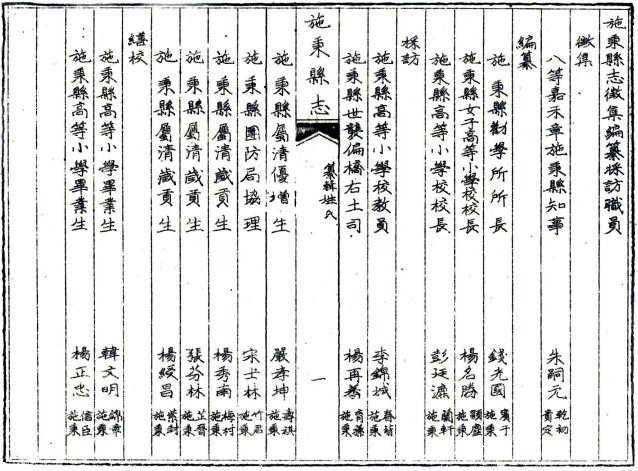 施秉縣志徵集編纂採訪職員
徵集
八等嘉禾章施秉縣知事 朱嗣元 乾初 貴定
編纂
施秉縣勸學所所長 錢光國 賓于 施秉
施秉縣女子高等小學校校長 楊名勝 顯塵 施秉
施秉縣高等小學校校長 彭廷瀌 蘭軒 施秉
採訪
施秉縣高等小學校教員 李錦城 施秉
施秉縣世襲偏橋右土司 楊再義 施秉
施秉縣志 纂輯姓氏 一
施秉縣屬清優增生 嚴孝坤 壽祺 施秉
施秉縣團防局協理 宋士林 竹君 施秉
施秉縣屬清歲貢生 楊秀南 梅村 施秉
施秉縣屬清歲貢生 張芬林 芷香 施秉
施秉縣屬清歲貢生 楊綬昌 紫封 施秉
繕校
施秉縣高等小學畢業生 韓文明 錦章 施秉
施秉縣高等小學畢業生 楊正忠 信臣 施秉